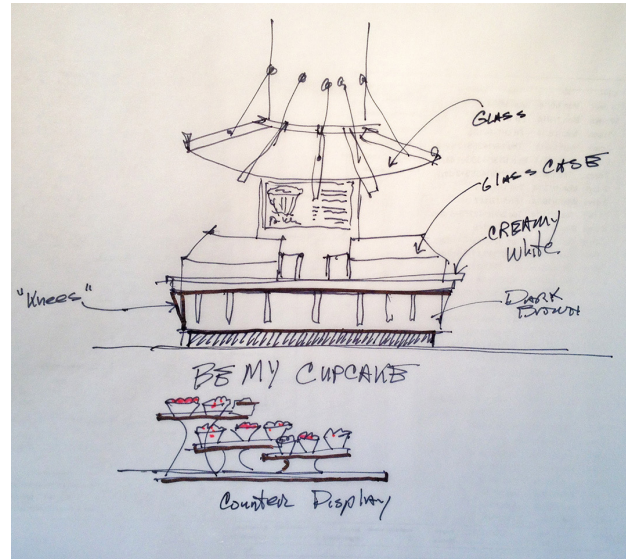 GLASS
GLASS CASE
CREAMY
White
"Knees"
DARK
BROWN
BE MY CUPCAKE
Counter Display